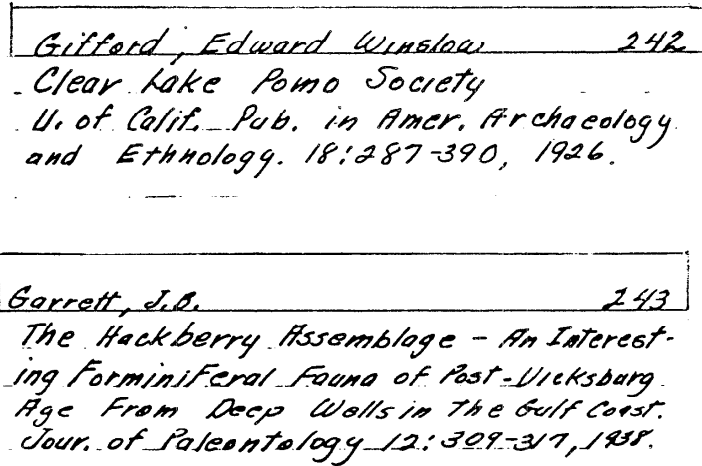 Gifford, Edward Winslow 242
Clear Lake Pomo Society
U. of Calif. Pub. in Amer. Archaeology
and Ethnology. 18:287-390, 1926.
Garrett, J.B. 243
The Hackberry Assemblage - An Interest-
ing Forminiferal Fauna of Post-Vicksburg
Age From Deep Wells in The Gulf Coast.
Jour. of Paleontology 12:309-317, 1938.